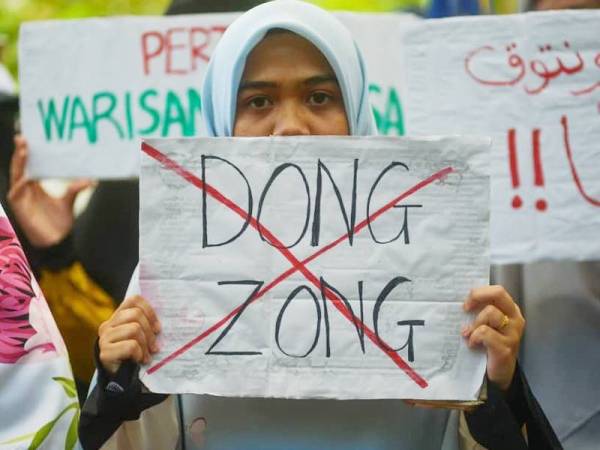 PERT
WARISAN SA
ونتوق
!!
DONG
ZONG